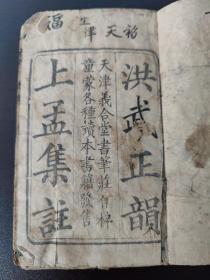 福生澤天裕
洪武正韻
天津義合堂書筆莊自梓
童蒙各種讀本書籍發售
上孟集註